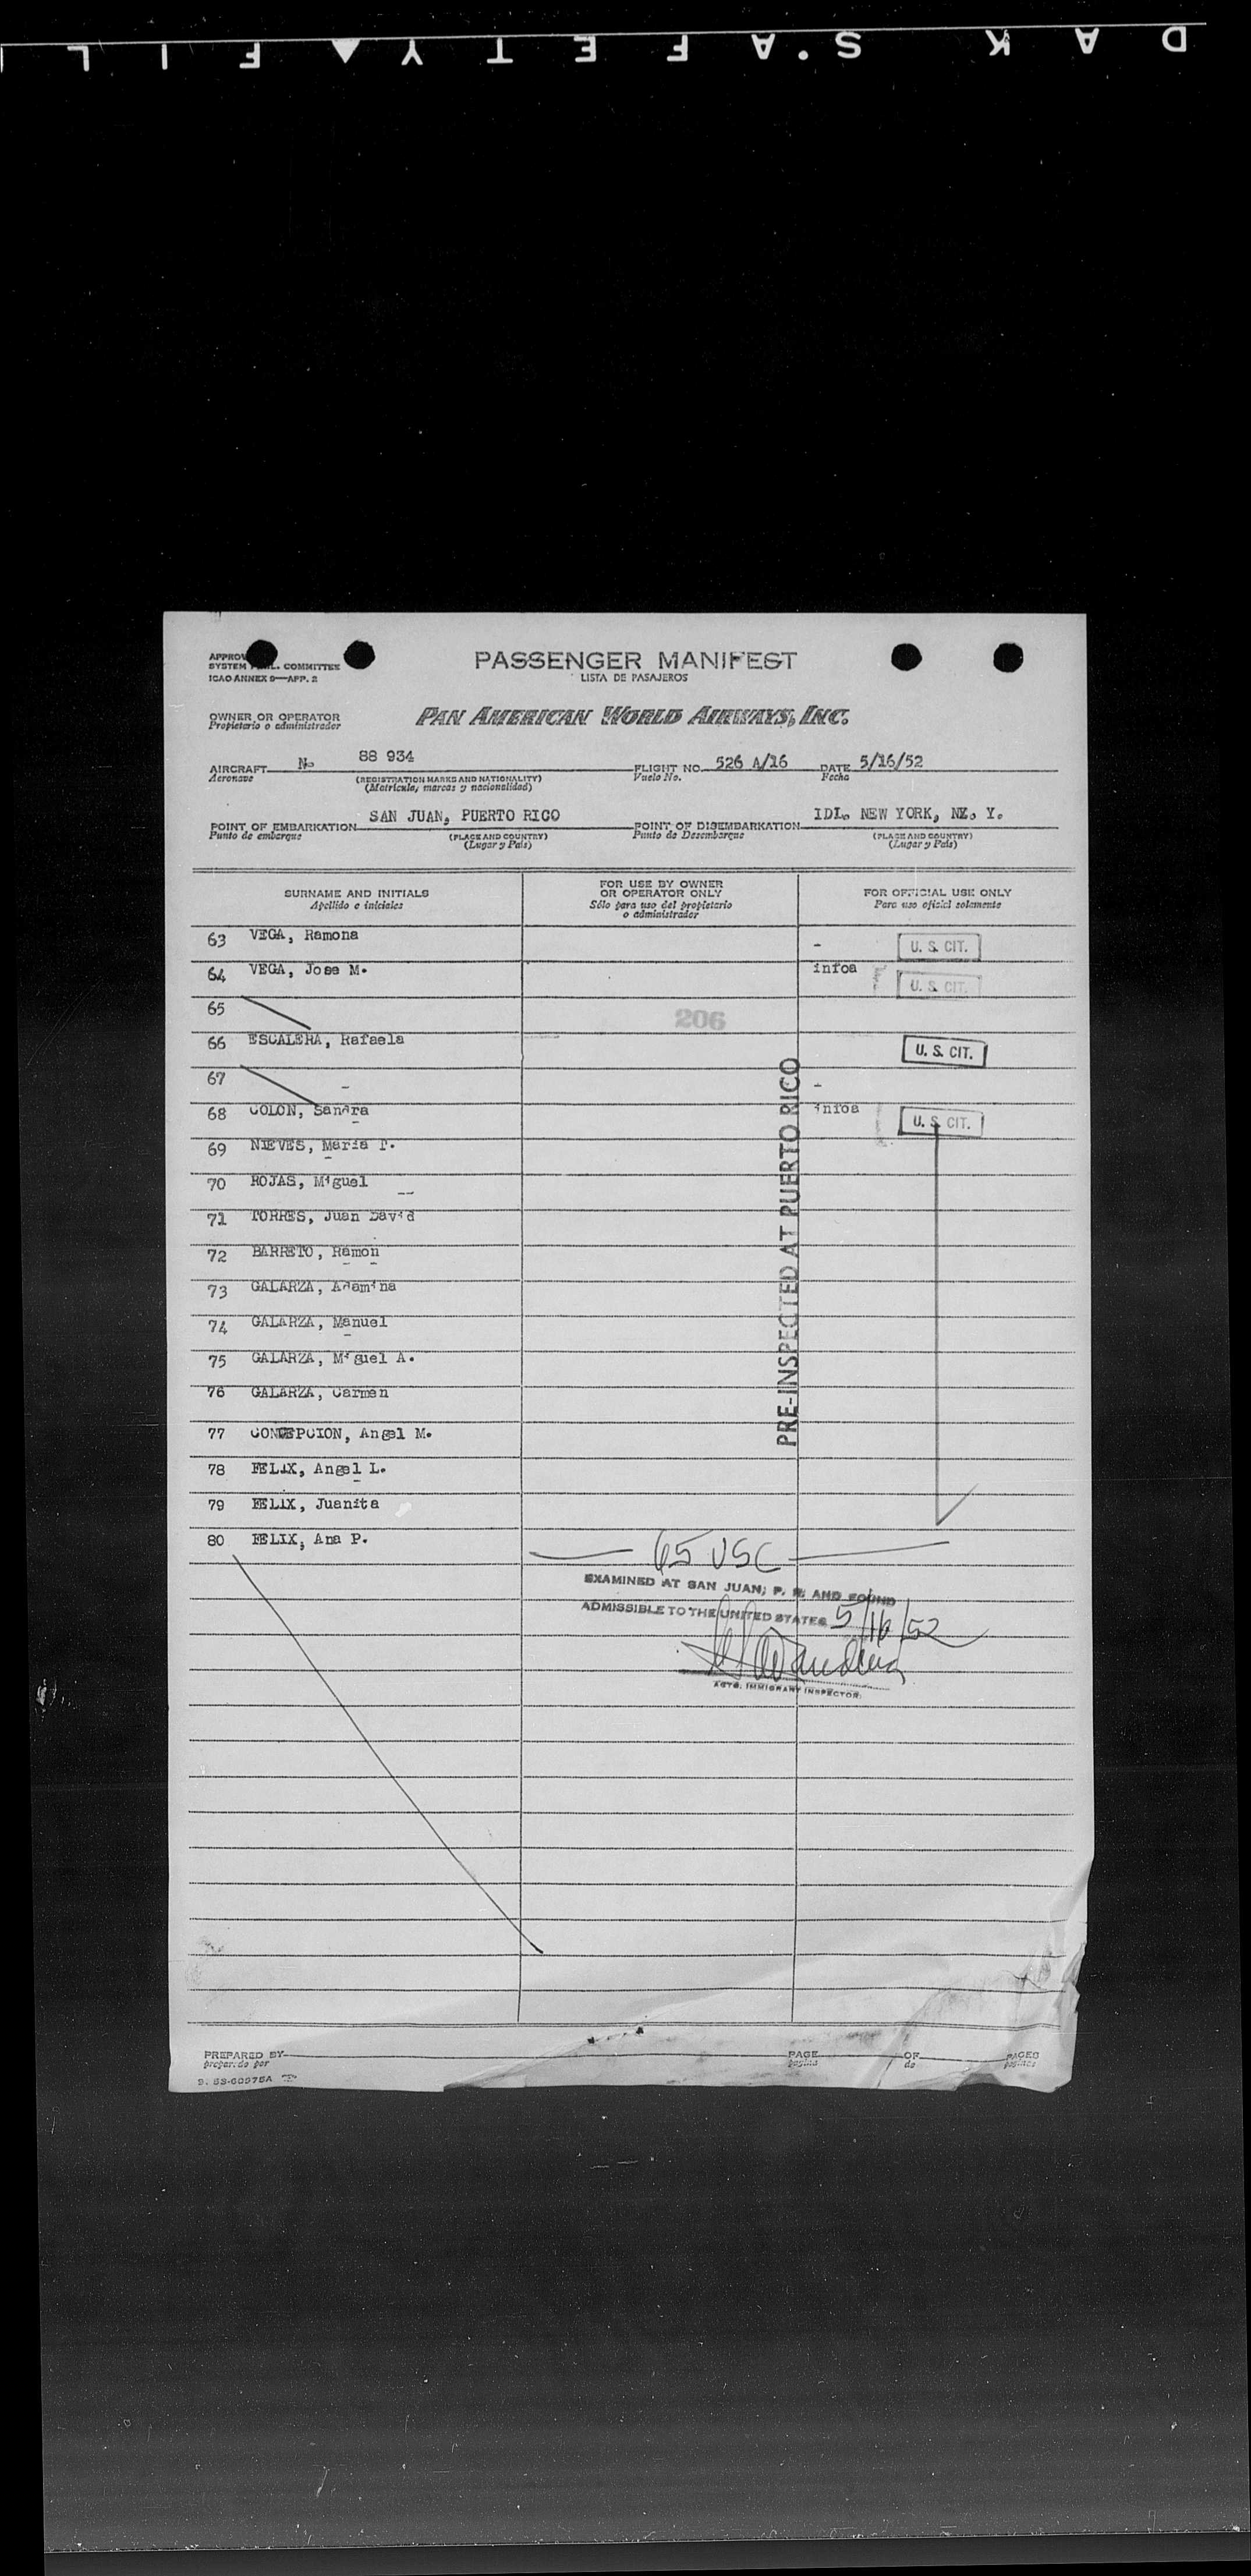 KODAK SAFETY ▲ FILM
APPROV
SYSTEM L. COMMITTEE
ICAO ANNEX 9—APP. 2
PASSENGER MANIFEST
LISTA DE PASAJEROS
OWNER OR OPERATOR
Propietario o administrador
PAN AMERICAN WORLD AIRWAYS, INC.
AIRCRAFT No 88 934 FLIGHT NO. 526 A/16 DATE 5/16/52
Aeronave (REGISTRATION MARKS AND NATIONALITY) Vuelo No. Fecha
(Matricula, marcas y nacionalidad)
POINT OF EMBARKATION SAN JUAN, PUERTO RICO POINT OF DISEMBARKATION IDL. NEW YORK, NE. Y.
Punto de embarque (PLACE AND COUNTRY) Punto de Desembarque (PLACE AND COUNTRY)
(Lugar y País) (Lugar y País)
SURNAME AND INITIALS
Apellido e iniciales
FOR USE BY OWNER
OR OPERATOR ONLY
Sólo para uso del propietario
o administrador
FOR OFFICIAL USE ONLY
Para uso oficial solamente
63 VEGA, Ramona - U. S. CIT.
64 VEGA, Jose M. infoa U. S. CIT.
65
206
66 ESCALERA, Rafaela U. S. CIT.
67 - -
68 COLON, Sandra infoa U. S. CIT.
69 NIEVES, Maria T.
70 ROJAS, Miguel
71 TORRES, Juan David
72 BARRETO, Ramon
73 GALARZA, Adamina
74 GALARZA, Manuel
75 GALARZA, Miguel A.
76 GALARZA, Carmen
77 CONCEPCION, Angel M.
78 FELIX, Angel L.
79 FELIX, Juanita
80 FELIX, Ana P.
PRE-INSPECTED AT PUERTO RICO
65 USC
EXAMINED AT SAN JUAN, P. R. AND FOUND
ADMISSIBLE TO THE UNITED STATES 5/16/52
ACTG. IMMIGRANT INSPECTOR
PREPARED BY PAGE OF PAGES
preparado por pagina de paginas